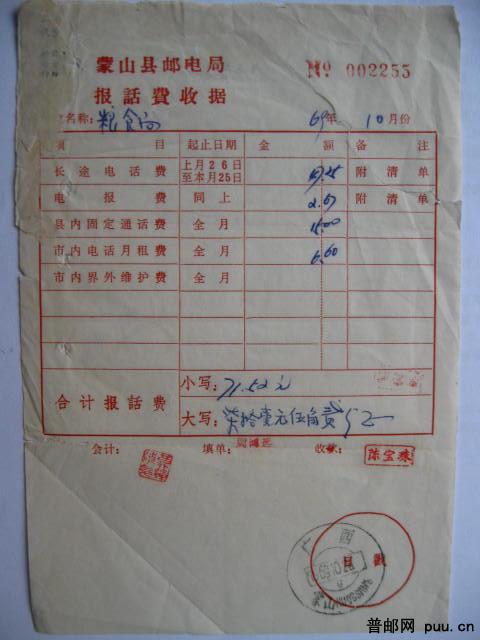 蒙山县邮电局
№ 002255
报話費收据
名称: 粮食局 69年 10月份
项目 起止日期 金额 备注
长途电话费 上月26日至本月25日 附清单
电报费 同上 2.67 附清单
县内固定通话费 全月 15.00
市内电话月租费 全月 6.60
市内界外维护费 全月
合计报話费 小写: 71.52元
大写: 柒拾壹元伍角贰分正
会计: 填单: 收款: 陈宝珠
广西
日戳
普邮网 puu.cn